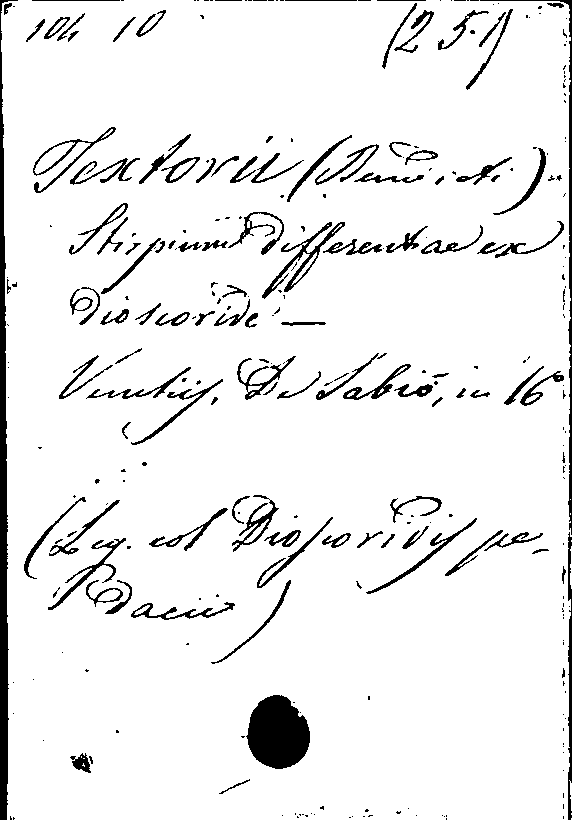 104 10 (251)
Textorii (Benedicti)-
Stirpium differentiae ex
Dioscoride —
Venetiis, De Sabió, in 16°
(Leg. col Dioscoridis pe-
dacii)